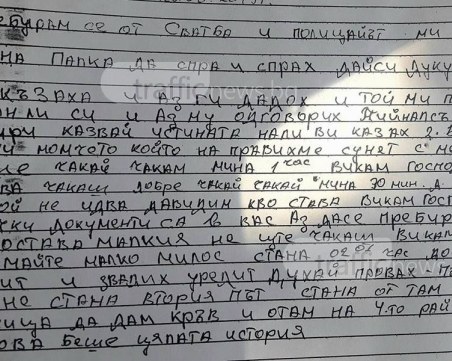 ЕБУРАМ СЕ ОТ СВАТБА И ПОЛИЦАЙЪТ МИ
НА ПАПКА ДА СПРА И СПРАХ ДАЙСИ ДУКУ
trafficnews.bg
КЪЗАХА И АЗ ГИ ДАДОХ И ТОЙ МИ П
АН ЛИ СИ И АЗ МУ ОДГОВОРИХ ПИЙНАПС
КАЗВАЙ ИСТИНАТА НАЛИ ВИ КАЗАХ 2.
МОМЧЕТО КОЙТО НА ПРАВИХМЕ СУНЕТ С М
ЧАКАЙ ЧАКАМ МИНА 1 ЧАС ВИКАМ ГОСПО
ВА ЧАКАШ ДОБРЕ ЧАКАЙ ЧАКАЙ МИНА 30 МИН. Д
ОЙ НЕ ИДВА ДАВИДИН КВО СТАВА ВИКАМ ГОСП
КИ ДОКУМЕНТИ СА В ВАС АЗ ДАСЕ ПРЕБИР
ОСТАВА МАЛКИЯ НЕ ЩЕ ЧАКАШ ВИКАМ
МАЙТЕ МАЛКО МИЛОС СТАНА 02 01 ЧАС ДО
ИТ И ЗВАДИХ УРЕДИТ ДУХАЙ ПРАВАХ П
trafficnews.bg
НЕ СТАНА ВТОРИЯ ПЪТ СТАНА ОТ ТАМ
ИЦА ДА ДАМ КРЪВ И ОТАМ НА 4.ТО РАЙ
ОВА БЕШЕ ЦЯЛАТА ИСТОРИЯ